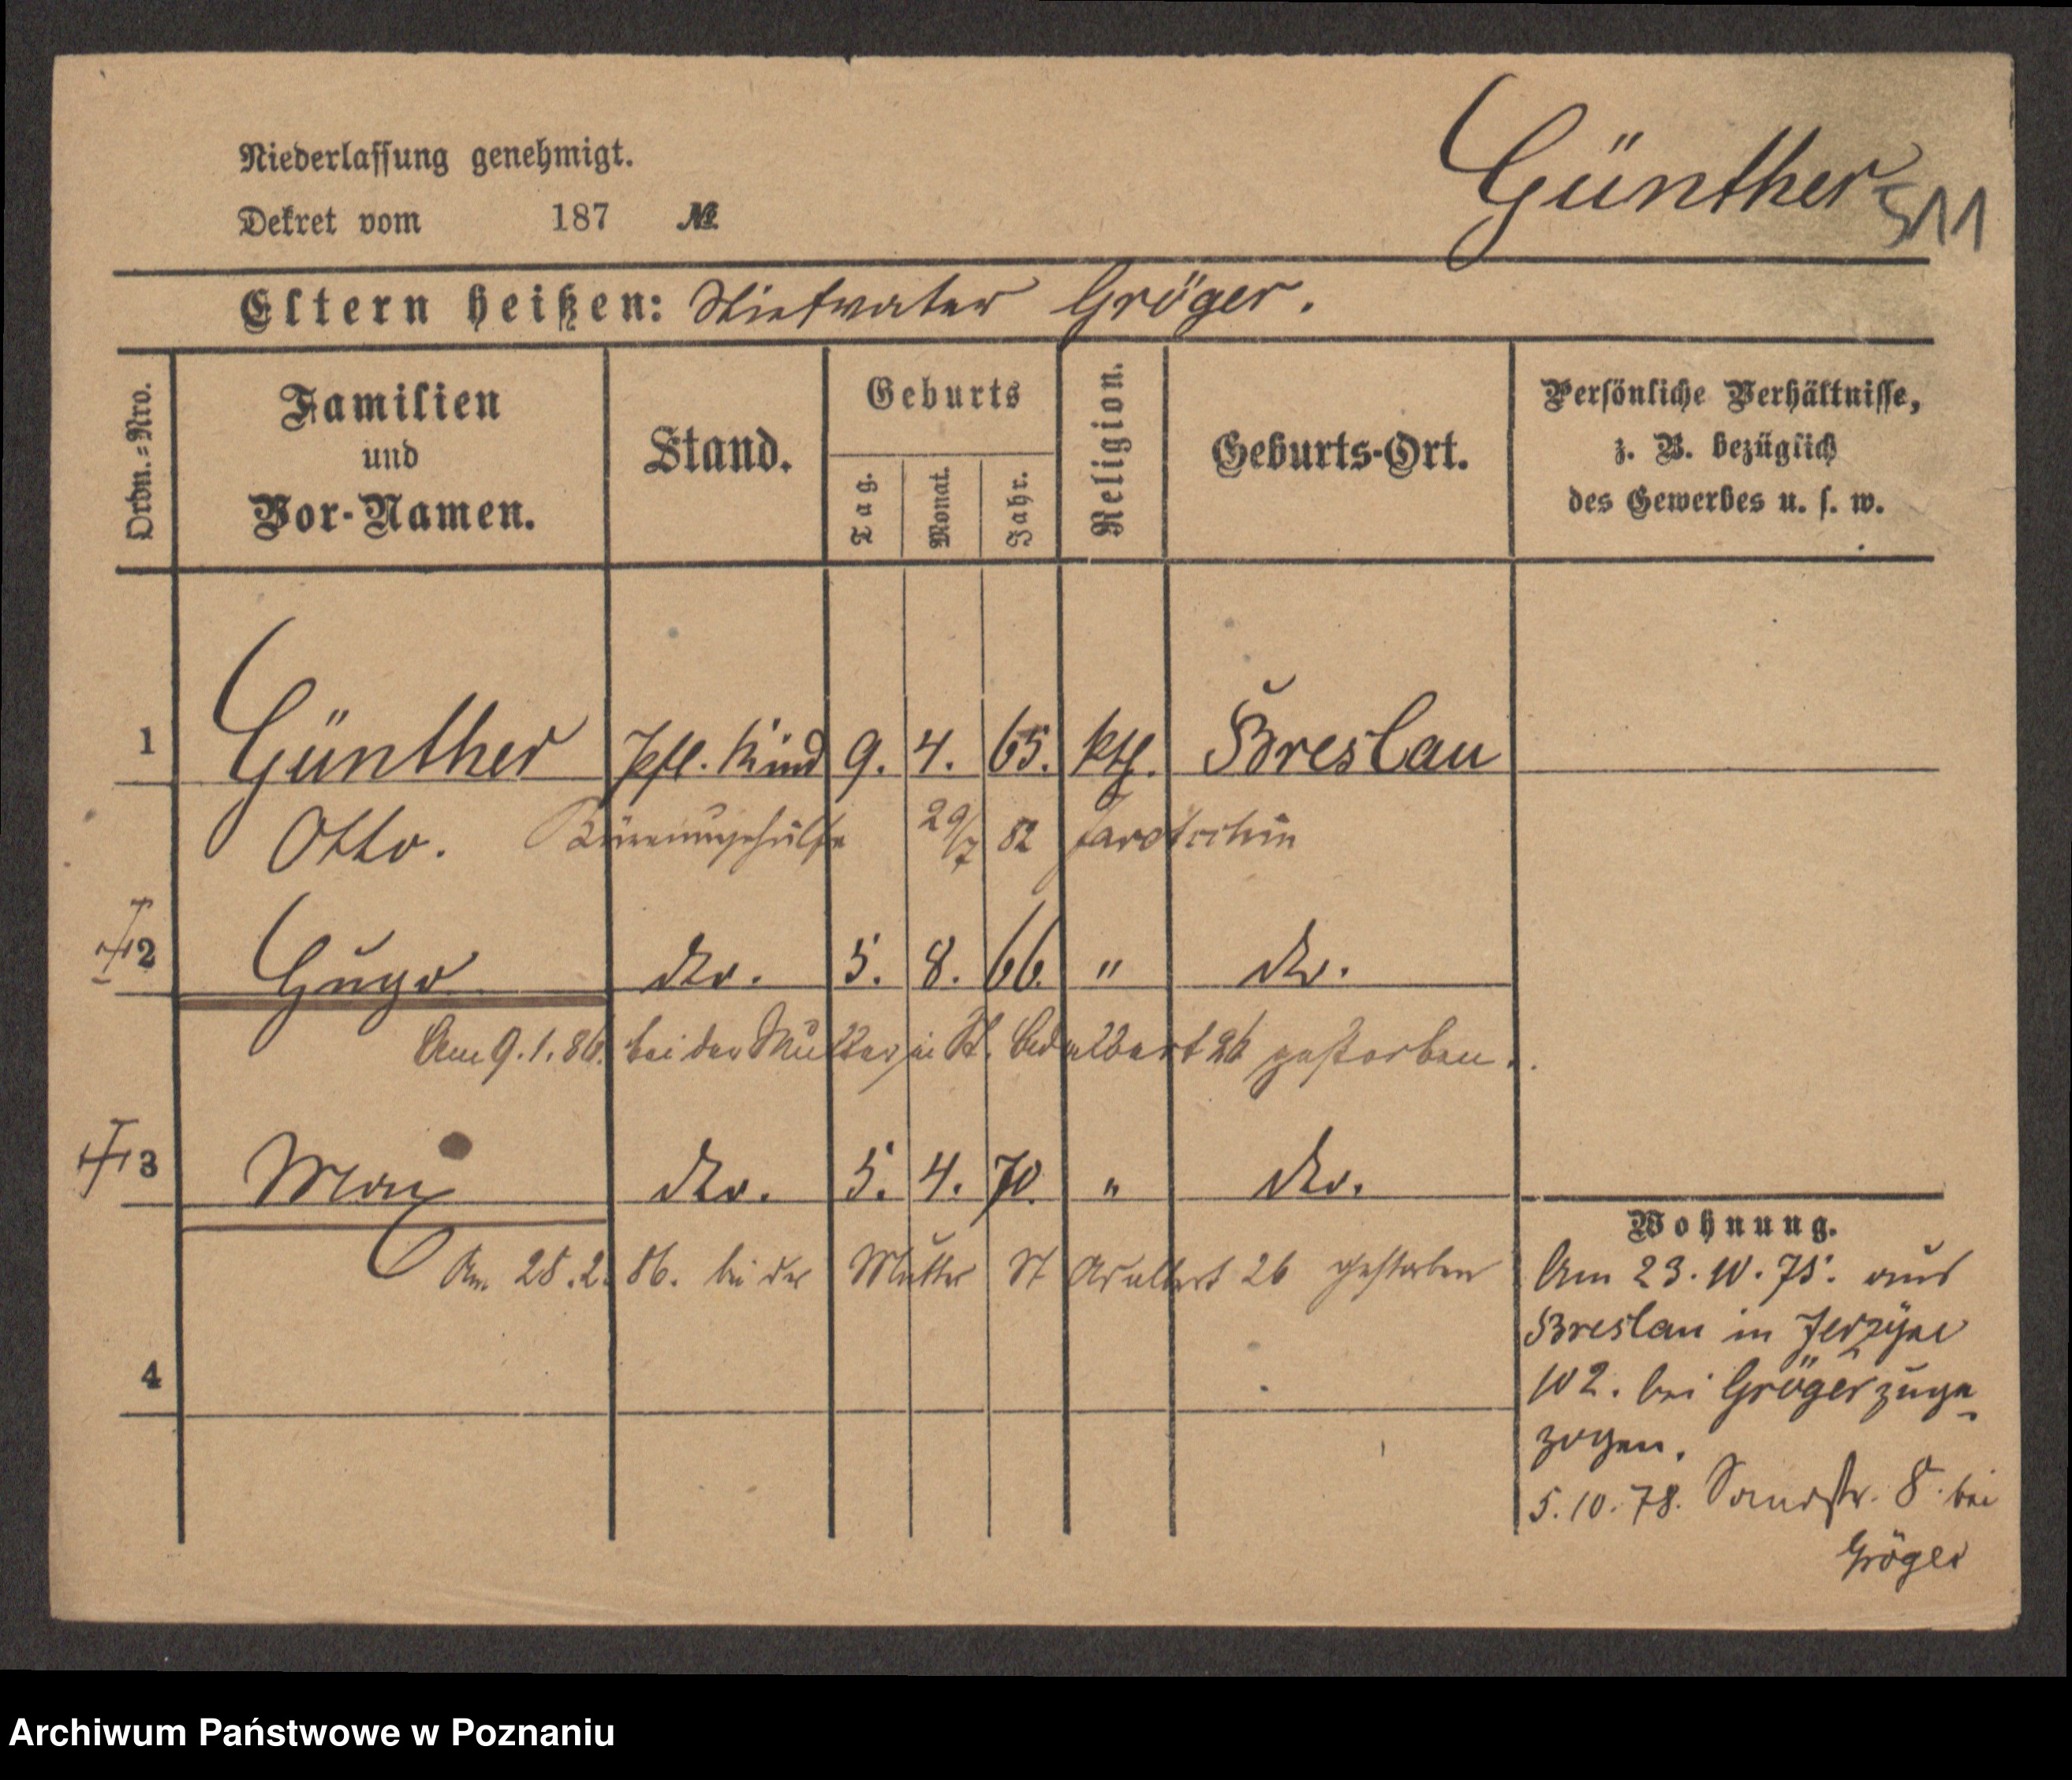 Günther
511
Niederlassung genehmigt.
Dekret vom 187 №
Eltern heißen: Stiefvater Gröger.
Ordn.=Nro.
Familien
und
Vor-Namen.
Stand.
Geburts
Tag.
Monat.
Jahr.
Religion.
Geburts-Ort.
Persönliche Verhältnisse,
z. B. bezüglich
des Gewerbes u. s. w.
1 Günther Pfl. Kind 9. 4. 65. kth. Breslau
Otto. 29/7 82 Jarotschin
2 Hugo dto. 5. 8. 66. " dto.
Am 9.1.86. bei der Mutter in St. Adalbert 26 gestorben.
3 Max dto. 5. 4. 70. " dto.
Am 28.2.86. bei der Mutter St Adalbert 26 gestorben
4
Wohnung.
Am 23.10.75. aus
Breslau in Jerzyce
102. bei Gröger zuge
zogen.
5.10.78. Sandstr. 8. bei
Gröger
Archiwum Państwowe w Poznaniu